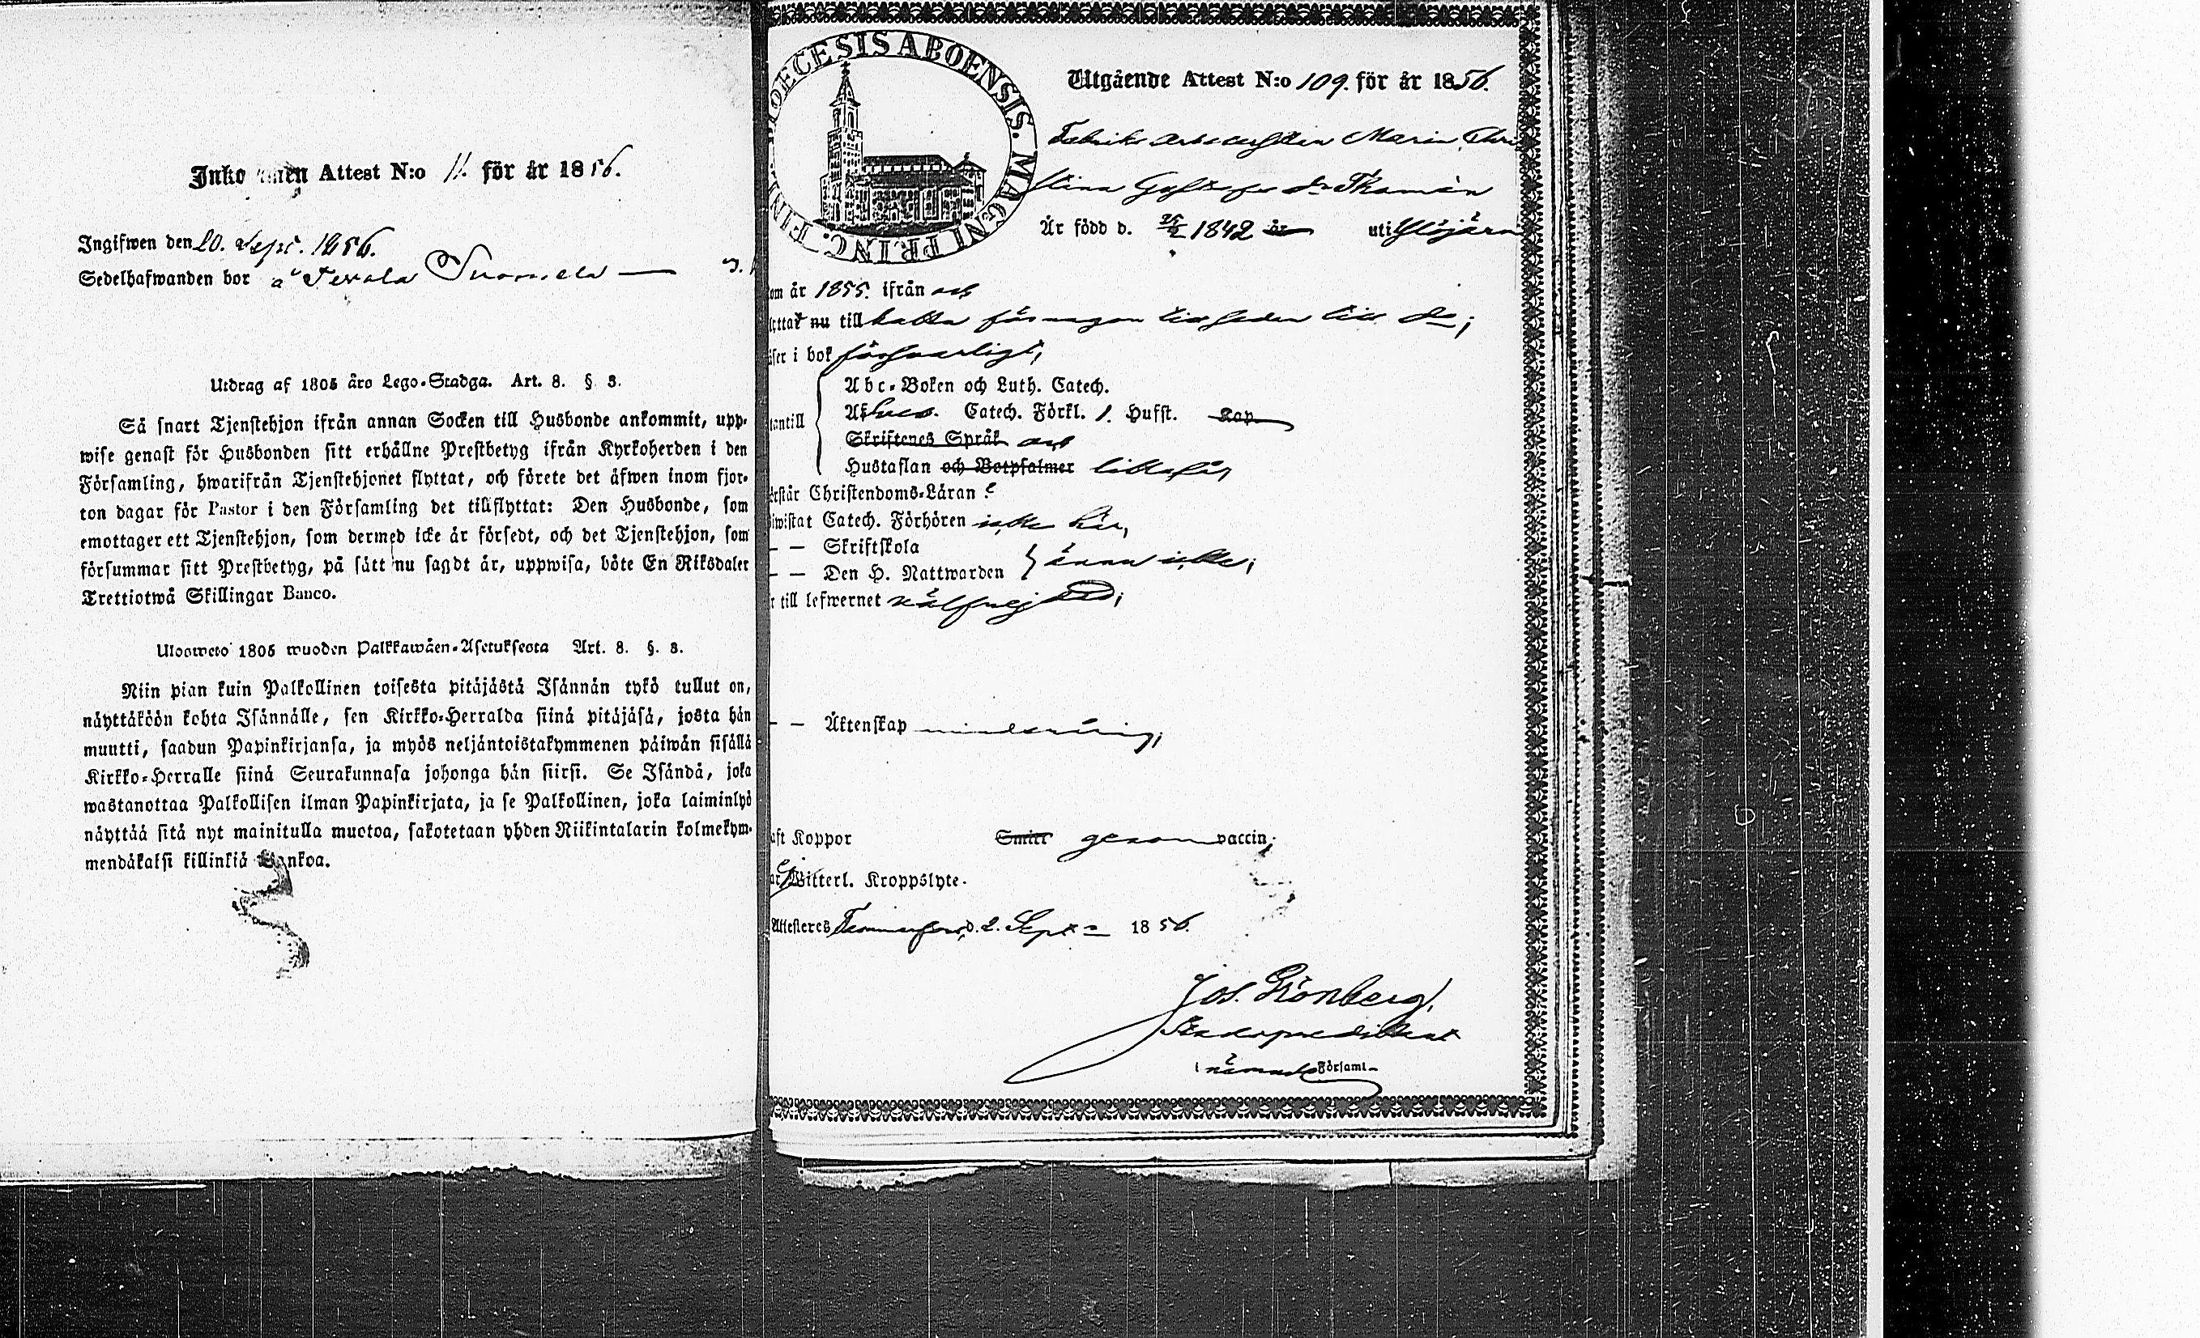 Inkommen Attest N:o 11. för år 1856.
Ingifwen den 20. Sept. 1856.
Sedelhafwanden bor å
Utdrag af 1805 års Lego-Stadga. Art. 8. § 3.
Så snart Tjenstehjon ifrån annan Socken till Husbonde ankommit, upp-
wise genast för Husbonden sitt erhållne Prestbetyg ifrån Kyrkoherden i den
Församling, hwarifrån Tjenstehjonet flyttat, och förete det äfwen inom fjor-
ton dagar för Pastor i den Församling det tillflyttat: Den Husbonde, som
emottager ett Tjenstehjon, som dermed icke är försedt, och det Tjenstehjon, som
försummar sitt Prestbetyg, på sätt nu sagdt är, uppwisa, böte En Riksdaler
Trettiotwå Skillingar Banco.
Ulosweto 1805 wuoden Palkkawäen-Asetuksesta Art. 8. §. 3.
Niin pian kuin Palkollinen toisesta pitäjästä Isännän tykö tullut on,
näyttäköön kohta Isännälle, sen Kirkko-Herralda siinä pitäjäsä, josta hän
muutti, saadun Papinkirjansa, ja myös neljäntoistakymmenen päiwän sisällä
Kirkko-Herralle siinä Seurakunnasa johonga hän siirsi. Se Isändä, joka
wastanottaa Palkollisen ilman Papinkirjata, ja se Palkollinen, joka laiminlyö
näyttää sitä nyt mainitulla muotoa, sakotetaan yhden Riikintalarin kolmekym-
mendäkaksi killinkiä Bankoa.
DIOECESIS ABOENSIS. MAGNI PRINC. FINL.
Utgående Attest N:o 109. för år 1856.
Fabriks arbeterskan Maria Chri
stina Gustafs dr
Är född d. 1842 år uti Ylöjärvi
om år 1855. ifrån och
lyttat nu till för någon tid sedan till do;
äser i bok försvarligt,
Abc-Boken och Luth. Catech.
utantill Af Sveb. Catech. Förkl. 1. Hufst. Kap
Skriftenes Språk och
Hustaflan och Botpsalmer likaså,
Förstår Christendoms-Läran
iwistat Catech. Förhören icke här,
– – Skriftskola
– – Den H. Nattwarden ännu icke;
r till lefwernet välfrejdad;
– – Äktenskap minderårig;
aft Koppor Smitt genom vaccin;
ar ej Witterl. Kroppslyte.
Attesteres Tammerfors, d. 2. Sept. 1856.
Jos. Grönberg,
Stadspredikant
i nämnde Församl.